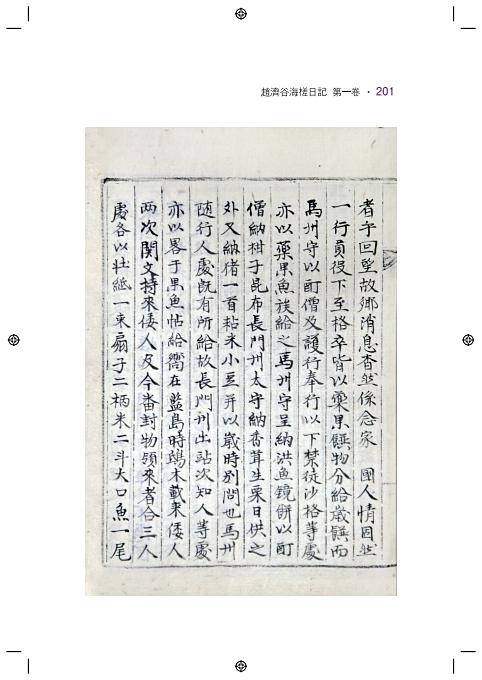 趙濟谷海槎日記 第一卷 · 201
者乎回望故鄉消息杳然係念家 國人情固然
一行員役下至格卒皆以藥果饌物分給歲饌而
馬州守以酊僧及護行奉行以下禁徒沙格等處
亦以藥果魚族給之馬州守呈納洪魚鏡餠以酊
僧納柑子昆布長門州太守納香茸生栗日供之
外又納猪一首粘米小豆并以歲時別問也馬州
隨行人處旣有所給故長門州出站次知人等處
亦以畧干果魚帖給嚮在藍島時鴟木載來倭人
兩次関文持來倭人及今番封物領來者合三人
處各以壯紙一束扇子二柄米二斗大口魚一尾